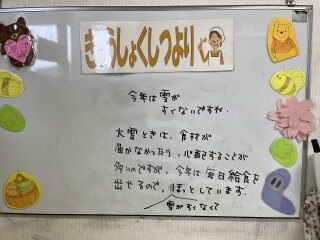 きゅうしょくしつより
今年は雪が
すくないですね。
大雪ときは、食材が
届かなかったり、心配することが
多いのですが、今年は毎日給食を
出せるので、ほっとしています。
雪がすくなくて